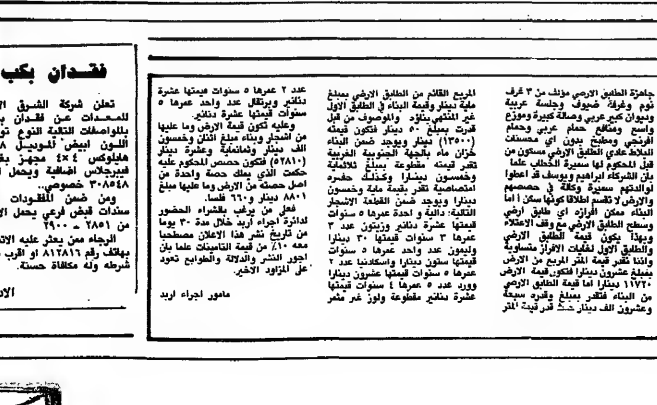 جاهزة الطابق الارضي مؤلف من ٣ غرف
نوم وغرفة ضيوف وجلسة عربية
وديوان كبير عربي وصالة كبيرة وموزع
واسع ومنافع حمام عربي وحمام
افرنجي ومطبخ بدون اي محسنات
البلاط عادي الطابق الارضي مسكون من
قبل المحكوم لها سميرة الخطاب علما
بان الشركاء ابراهيم ويوسف قد اعطوا
لوالدتهم سميرة وكالة في حصصهم
والارض لا تقسم اطلاقا كونها سكن ا اما
البناء ممكن افرازه اي طابق ارضي
وسطح الطابق الارضي مع وقف الاعتلاء
وبهذا يكون قيمة الطابق الارضي
والطابق الاول لغايات الافراز متساوية
واننا نقدر قيمة المتر المربع من الارض
بمبلغ عشرون دينارا فتكون قيمة الارض
١١٧٢٠ دينارا اما قيمة الطابق الارضي
من البناء فتقدر بمبلغ وقدره سبعة
وعشرون الف دينار حيث قدر قيمة المتر
المربع القائم من الطابق الارضي بمبلغ
ماية دينار وقيمة البناء في الطابق الاول
غير المنتهي بناؤه والموصوف من قبل
قدرت بمبلغ ٥٠ دينار فتكون قيمته
(١٣٥٠٠) دينار ويوجد ضمن البناء
خزان ماء بالجهة الجنوبية الغربية
تقدر قيمته مقطوعة بمبلغ ثلاثماية
وخمسون دينارا وكذلك حفره
امتصاصية تقدر بقيمة ماية وخمسون
دينارا ويوجد ضمن القطعة الاشجار
التالية: دالية و احدة عمرها ٥ سنوات
قيمتها عشرة دنانير وزيتون عدد ٣
عمرها ٣ سنوات قيمتها ٣٠ دينارا
وليمون عدد واحد عمرها ٥ سنوات
قيمتها ستون دينارا واسكادنيا عدد ٢
عمرها ٥ سنوات قيمتها عشرون دينارا
وورد عدد ٥ عمرها ٤ سنوات قيمتها
عشرة دنانير مقطوعة ولوز غير مثمر
عدد ٢ عمرها ٥ سنوات قيمتها عشرة
دنانير وبرتقال عدد واحد عمرها ٥
سنوات قيمتها عشرة دنانير.
وعليه تكون قيمة الارض وما عليها
من اشجار وبناء مبلغ اثنان وخمسون
الف دينار وثمانماية وعشرة دينار
(٥٢٨١٠) فتكون حصص المحكوم عليه
حكمت الذي يملك حصة واحدة من
اصل حصته من الارض وما عليها مبلغ
٨٨٠١ دينار و٦٦٠ فلسا.
فعلى من يرغب بالشراء الحضور
لدائرة اجراء اربد خلال مدة ٣٠ يوما
من تاريخ نشر هذا الاعلان مصطحبا
معه ١٠٪ من قيمة التامينات علما بان
اجور النشر والدلالة والطوابع تعود
على المزاود الاخير.
مامور اجراء اربد
فقـدان بكب
تعلن شركة الشرق الا
للمعـدات عن فقدان بـ
بالمواصفات التالية النوع تو
اللـون ابيض الموديل ٨
هايلوكس ٤×٤ مجهز بقـ
فيبرجلاس اضافية ويحمل ا
٣٠٨٥٤٨ خصوصي..
ومن ضمن المفقودات
سندات قبض فرعي يحمل الا
من ٢٨٥١ ـ ٢٩٠٠
الرجاء ممن يعثر عليه الات
بهاتف رقم ٨١٢٨١٦ او اقرب
شرطه وله مكافاة حسنة.
الاد